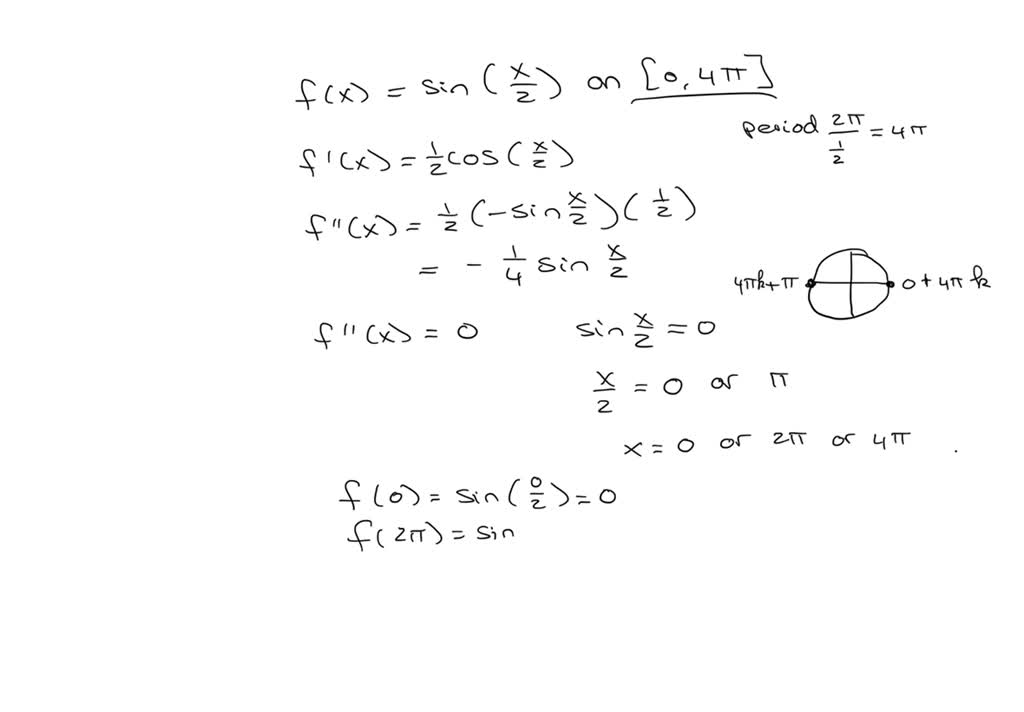 f(x) = sin (x/2) on [0, 4π]
period 2π/(1/2) = 4π
f'(x) = 1/2 cos (x/2)
f''(x) = 1/2 (-sin x/2) (1/2)
= - 1/4 sin x/2
4πk+π 0 + 4πk
f''(x) = 0 sin x/2 = 0
x/2 = 0 or π
x = 0 or 2π or 4π .
f(0) = sin (0/2) = 0
f(2π) = sin